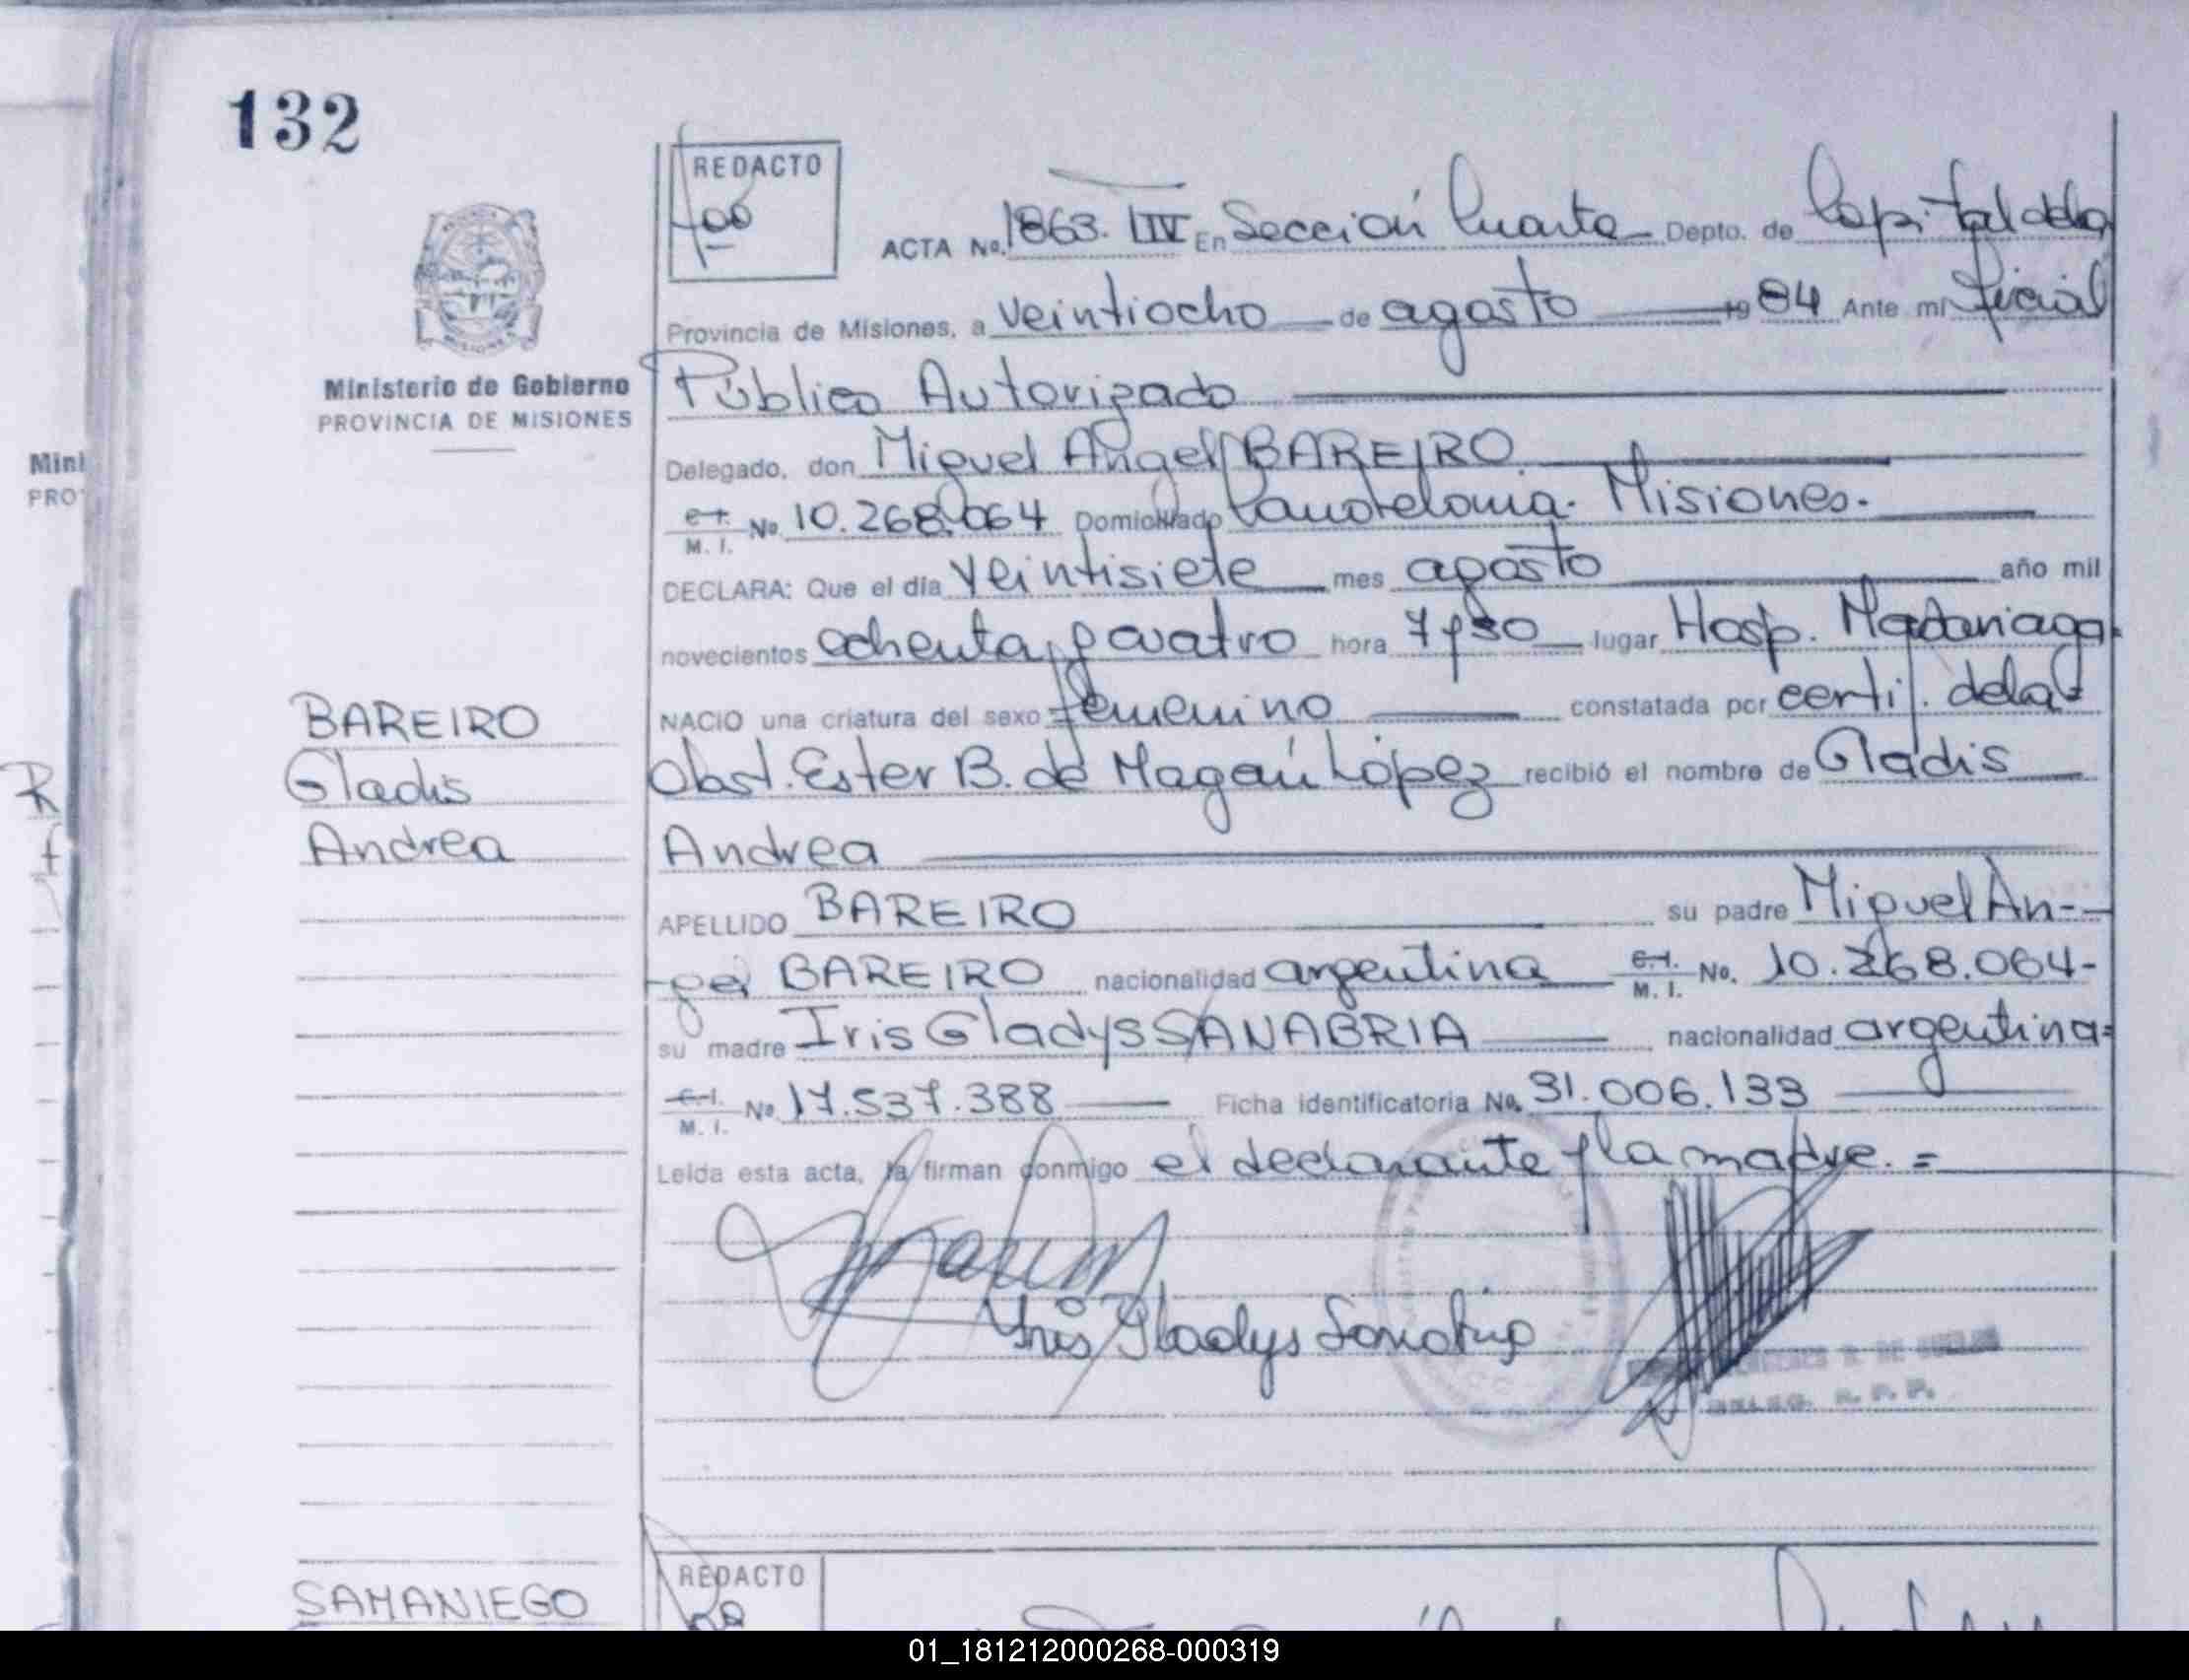 132
REDACTO
ACTA No. 1863. T IV En Sección Cuarta Depto. de Capital de la
Provincia de Misiones, a veintiocho de agosto 1984 Ante mí Oficial
Público Autorizado
Ministerio de Gobierno
PROVINCIA DE MISIONES
Delegado, don Miguel Angel BAREIRO.
C.I. M. I. No. 10.268.064 Domiciliado Candelaria. Misiones.
DECLARA: Que el día veintisiete mes agosto año mil
novecientos ochenta y cuatro hora 7 y 30 lugar Hosp. Madariaga
NACIO una criatura del sexo femenino constatada por certif. de la
Obst. Ester B. de Magan López recibió el nombre de Gladis
Andrea
BAREIRO
Gladis
Andrea
APELLIDO BAREIRO su padre Miguel An-
-gel BAREIRO nacionalidad argentina C.I. M. I. No. 10.268.064-
su madre Iris Gladys SANABRIA nacionalidad argentina=
C.I. M. I. No 17.537.388 Ficha identificatoria No. 31.006.133
Leída esta acta, la firman conmigo el declarante y la madre. =
Iris Gladys Sanabria
SAMANIEGO
REDACTO
Mini
PRO
01_181212000268-000319